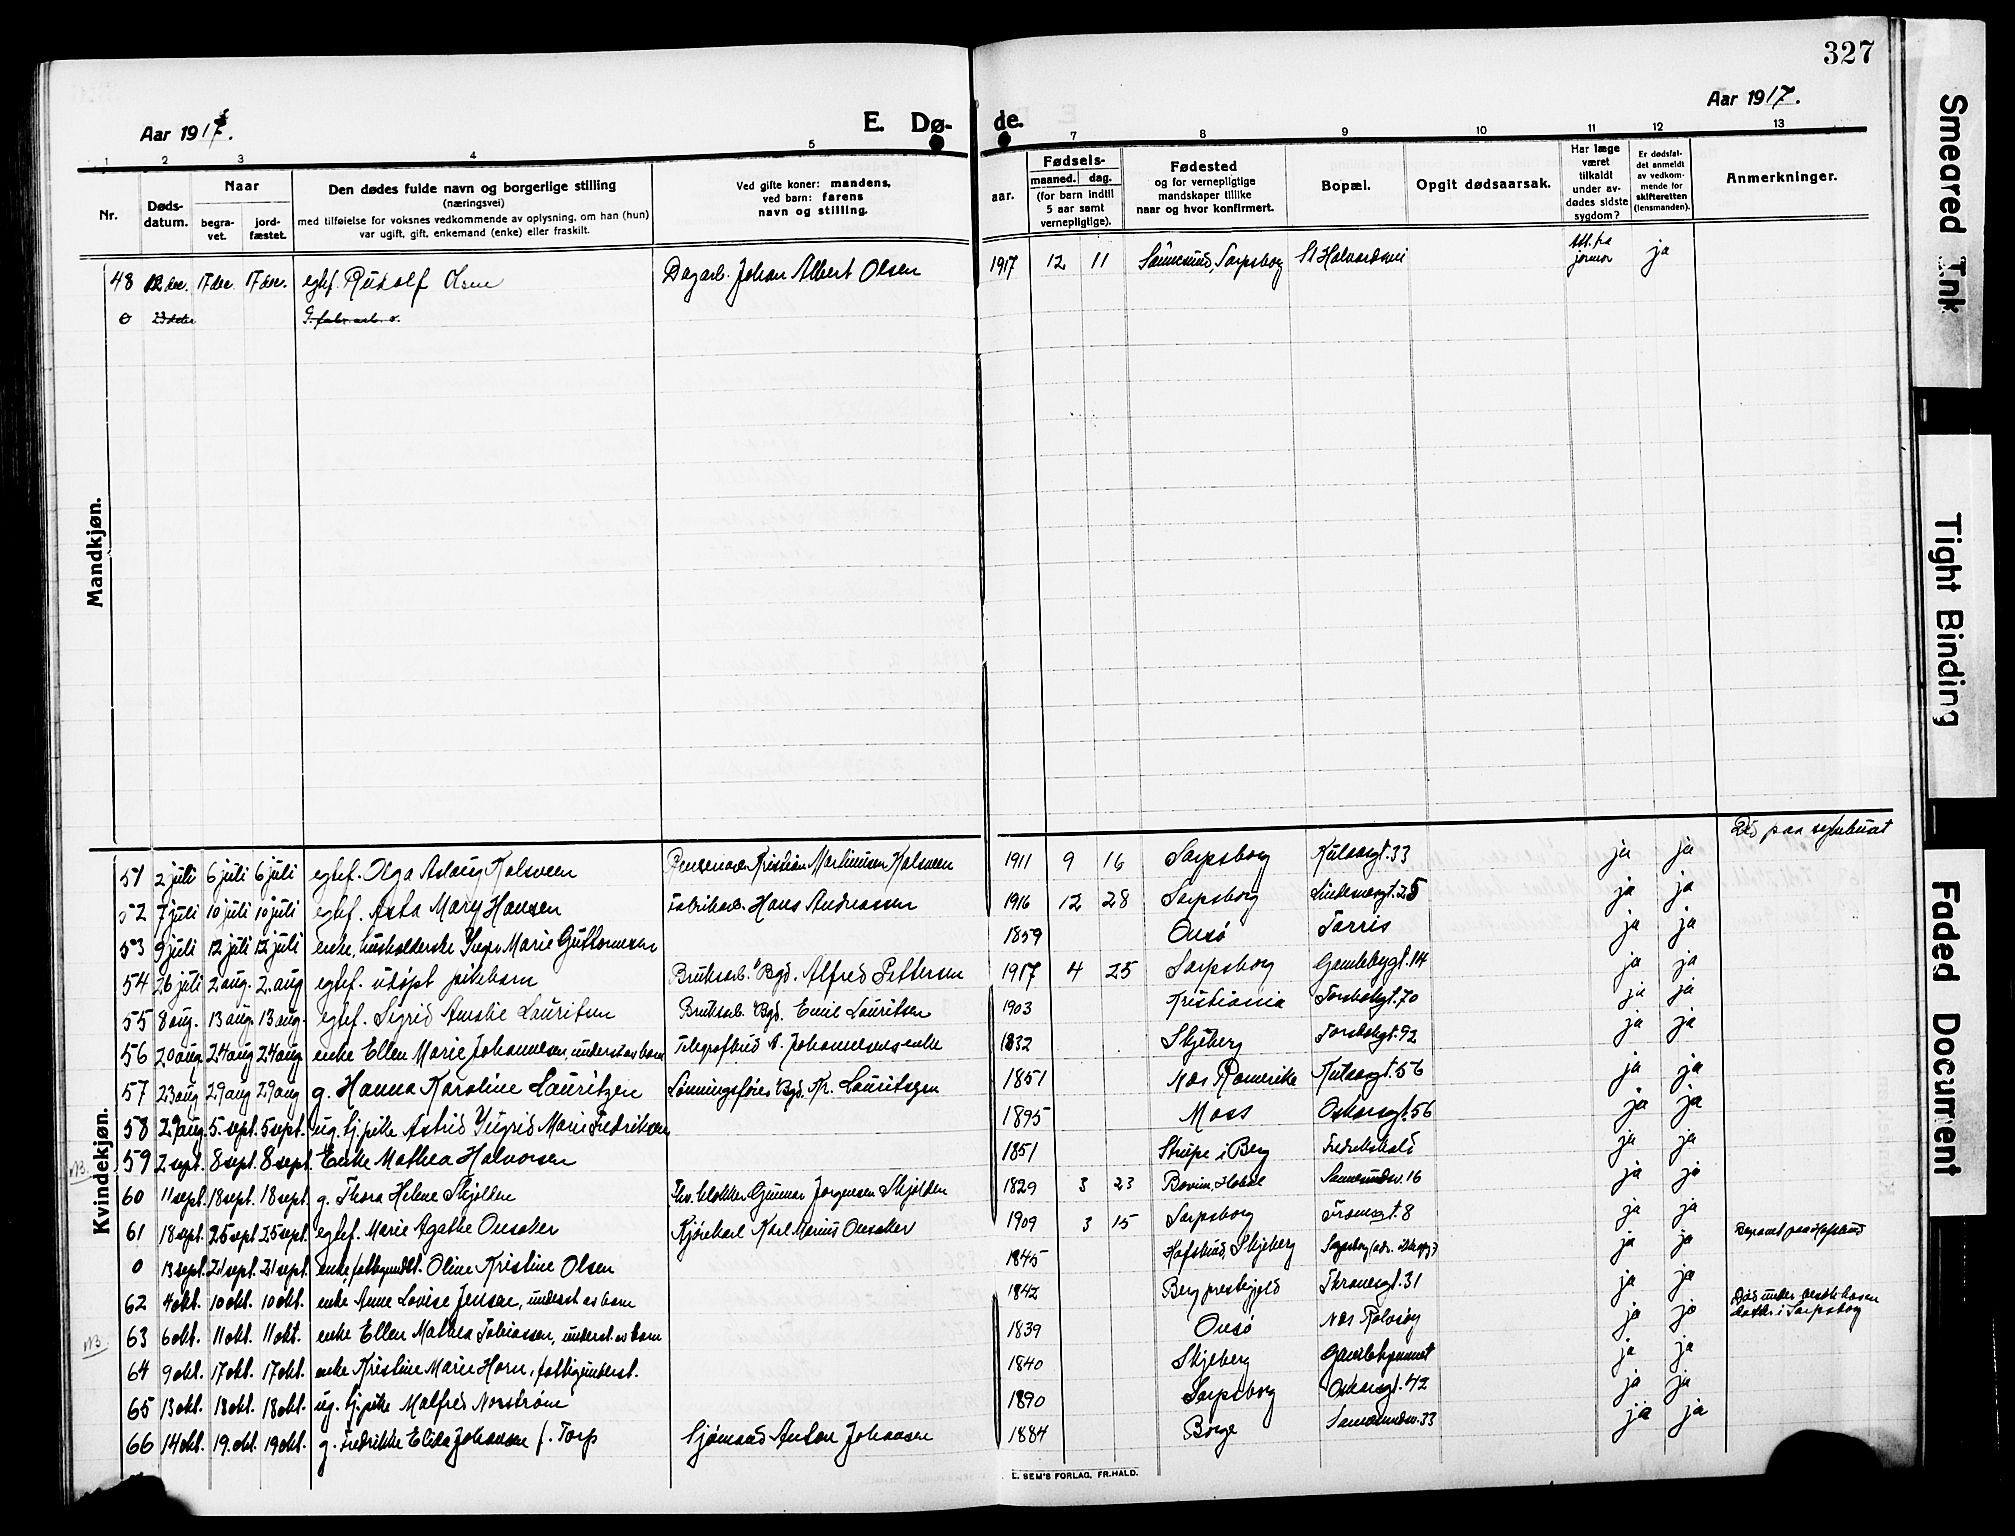 327
Aar 1917.
E. Dø-
de.
Aar 1917.
1 2 3 4 5 7 8 9 10 11 12 13
Nr.
Døds-
datum.
Naar
begra-
vet.
jord-
fæstet.
Den dødes fulde navn og borgerlige stilling
(næringsvei)
med tilføielse for voksnes vedkommende av oplysning, om han (hun)
var ugift, gift, enkemand (enke) eller fraskilt.
Ved gifte koner: mandens,
ved barn: farens
navn og stilling.
Fødsels-
aar.
maaned. dag.
(for barn indtil
5 aar samt
vernepligtige).
Fødested
og for vernepligtige
mandskaper tillike
naar og hvor konfirmert.
Bopæl.
Opgit dødsaarsak.
Har læge
været
tilkaldt
under av-
dødes sidste
sygdom?
Er dødsfal-
det anmeldt
av vedkom-
mende for
skifteretten
(lensmanden).
Anmerkninger.
Mandkjøn.
48 12 dec. 17 dec. 17 dec. egtef. Rudolf Olsen Dagarb. Johan Albert Olsen 1917 12 11 Sannesund, Sarpsborg St Halvardsvei att. fra
jormor ja
0 23 G. fabr. arb. o.
Kvindekjøn.
Død paa sykehuset
51 2 juli 6 juli 6 juli egtef. Olga Aslaug Kolsveen Kristian Martinusen Kolsveen 1911 9 16 Sarpsborg Kulaasgt. 33 ja ja
52 7 juli 10 juli 10 juli egtef. Asta Mary Hansen Fabrikarb. Hans Andreassen 1916 12 28 Sarpsborg Lindemansgt. 25 ja ja
53 9 juli 12 juli 12 juli enke, husholderske Inger Marie Guttormsen 1859 Onsø Torris ja ja
54 26 juli 2 aug. 2. aug egtef. utøpt pikebarn Bruksarb. Bgd. Alfred Pettersen 1917 4 25 Sarpsborg Gamlebygt. 14 ja ja
55 8 aug. 13 aug. 13 aug. egtef. Sigrid Amalie Lauritsen Bruksarb. Bgd. Emil Lauritsen 1903 Kristiania Torsbekgt. 70 ja ja
56 20 aug. 24 aug 24 aug enke Ellen Marie Johannesen, underst. av barn Telegrafbud A. Johannesens enke 1832 Skjeberg Torsbekgt. 92 ja ja
57 23 aug 29 aug 29 aug g. Hanna Karoline Lauritzen Lønningsfører Bgd. Kr. Lauritsen 1851 Næs Romerike Kulaasgt. 56 ja ja
58 29 aug. 5. sept. 5 sept. ug. tj. pike Astrid Yngrid Marie Fredriksen 1895 Moss Oskarsgt. 56 ja ja
NB. 59 2 sept. 8 sept. 8 sept. Enke Mathea Halvorsen 1851 Strupe i Berg Fredrikshald ja ja
60 11 sept. 18 sept. 18 sept. g. Thora Helene Skjolden Gunnar Jørgensen Skjolden 1829 3 23 Bovim, Hobøl Sannesundsv. 16 ja ja
61 18 sept. 25 sept. 25 sept. egtef. Marie Agathe Onsaker Kjørekarl Karl Marius Onsaker 1909 3 15 Sarpsborg Tromsgt. 8 ja ja
Begravet paa Hafslund
0 13 sept. 21 sept. 21 sept. enke, fattigundst. Oline Kristine Olsen 1845 Hafslund, Skjeberg Sarpsborg (adr. ikke opg.) ja ja
62 4 okt. 10 okt. 10 okt. enke Anne Lovise Jensen, underst av barn 1842 Berg prestegjeld Skranesgt. 31 ja ja
Død under besøk hos en
datter i Sarpsborg
NB. 63 6 okt. 11 okt. 11 okt. enke Ellen Mathea Tobiassen, underst. av barn 1839 Onsø Næs Rolvsøy ja ja
64 9 okt. 17 okt. 17 okt. enke Kristine Marie Horn, fattigunderst. 1840 Skjeberg Gamlehjemmet ja ja
65 13 okt. 18 okt. 18 okt. ug. tj. pike Malfred Norstrøm 1890 Sarpsborg Oskarsgt. 42 ja ja
66 14 okt. 19. okt. 19 okt. g. Fredrikke Elida Johansen f. Torp Sjømand Anton Johansen 1884 Borge Sannesundsv. 33 ja ja
E. SEM'S FORLAG, FR.HALD.
Smeared Ink
Tight Binding
Faded Document